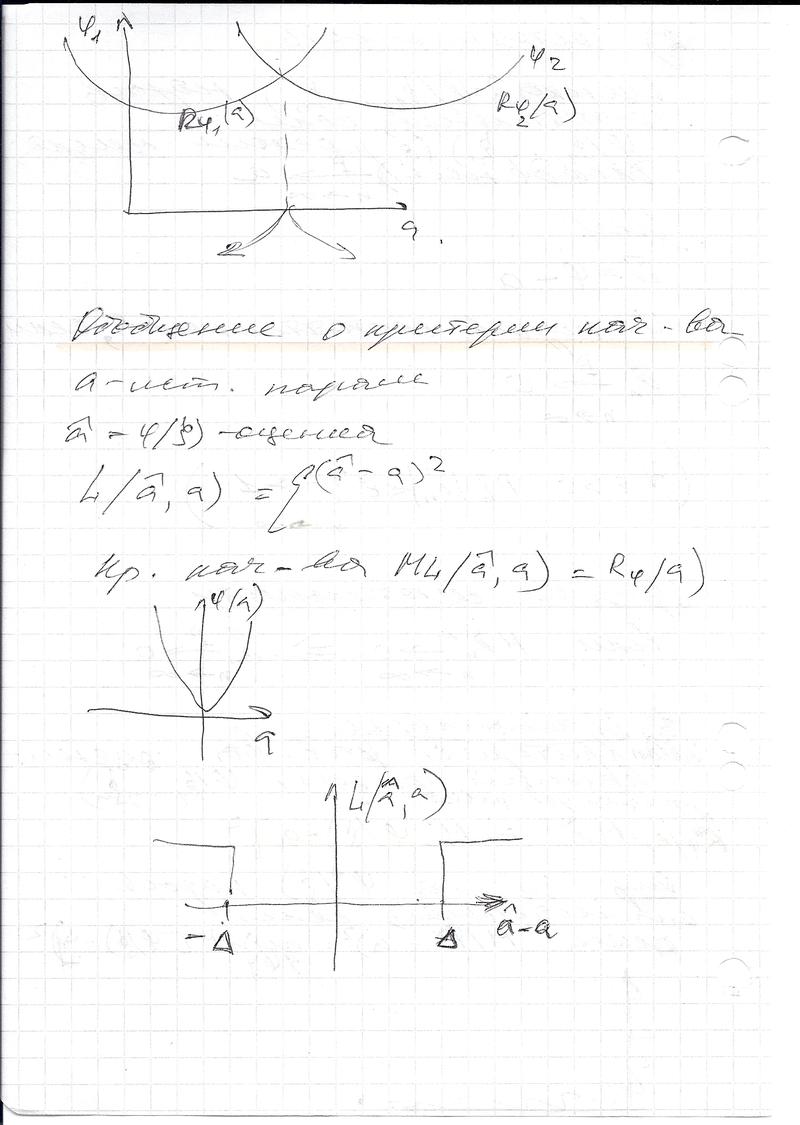 φ₁
φ₂
Rφ₁(a)
Rφ₂(a)
a
Обобщение о критерии кач-ва
a - ист. парам
â = φ(ξ) - оценка
L(â, a) = { (â - a)²
Кр. кач-ва ML(â, a) = Rφ(a)
φ(a)
a
L(â, a)
-Δ
Δ
â-a